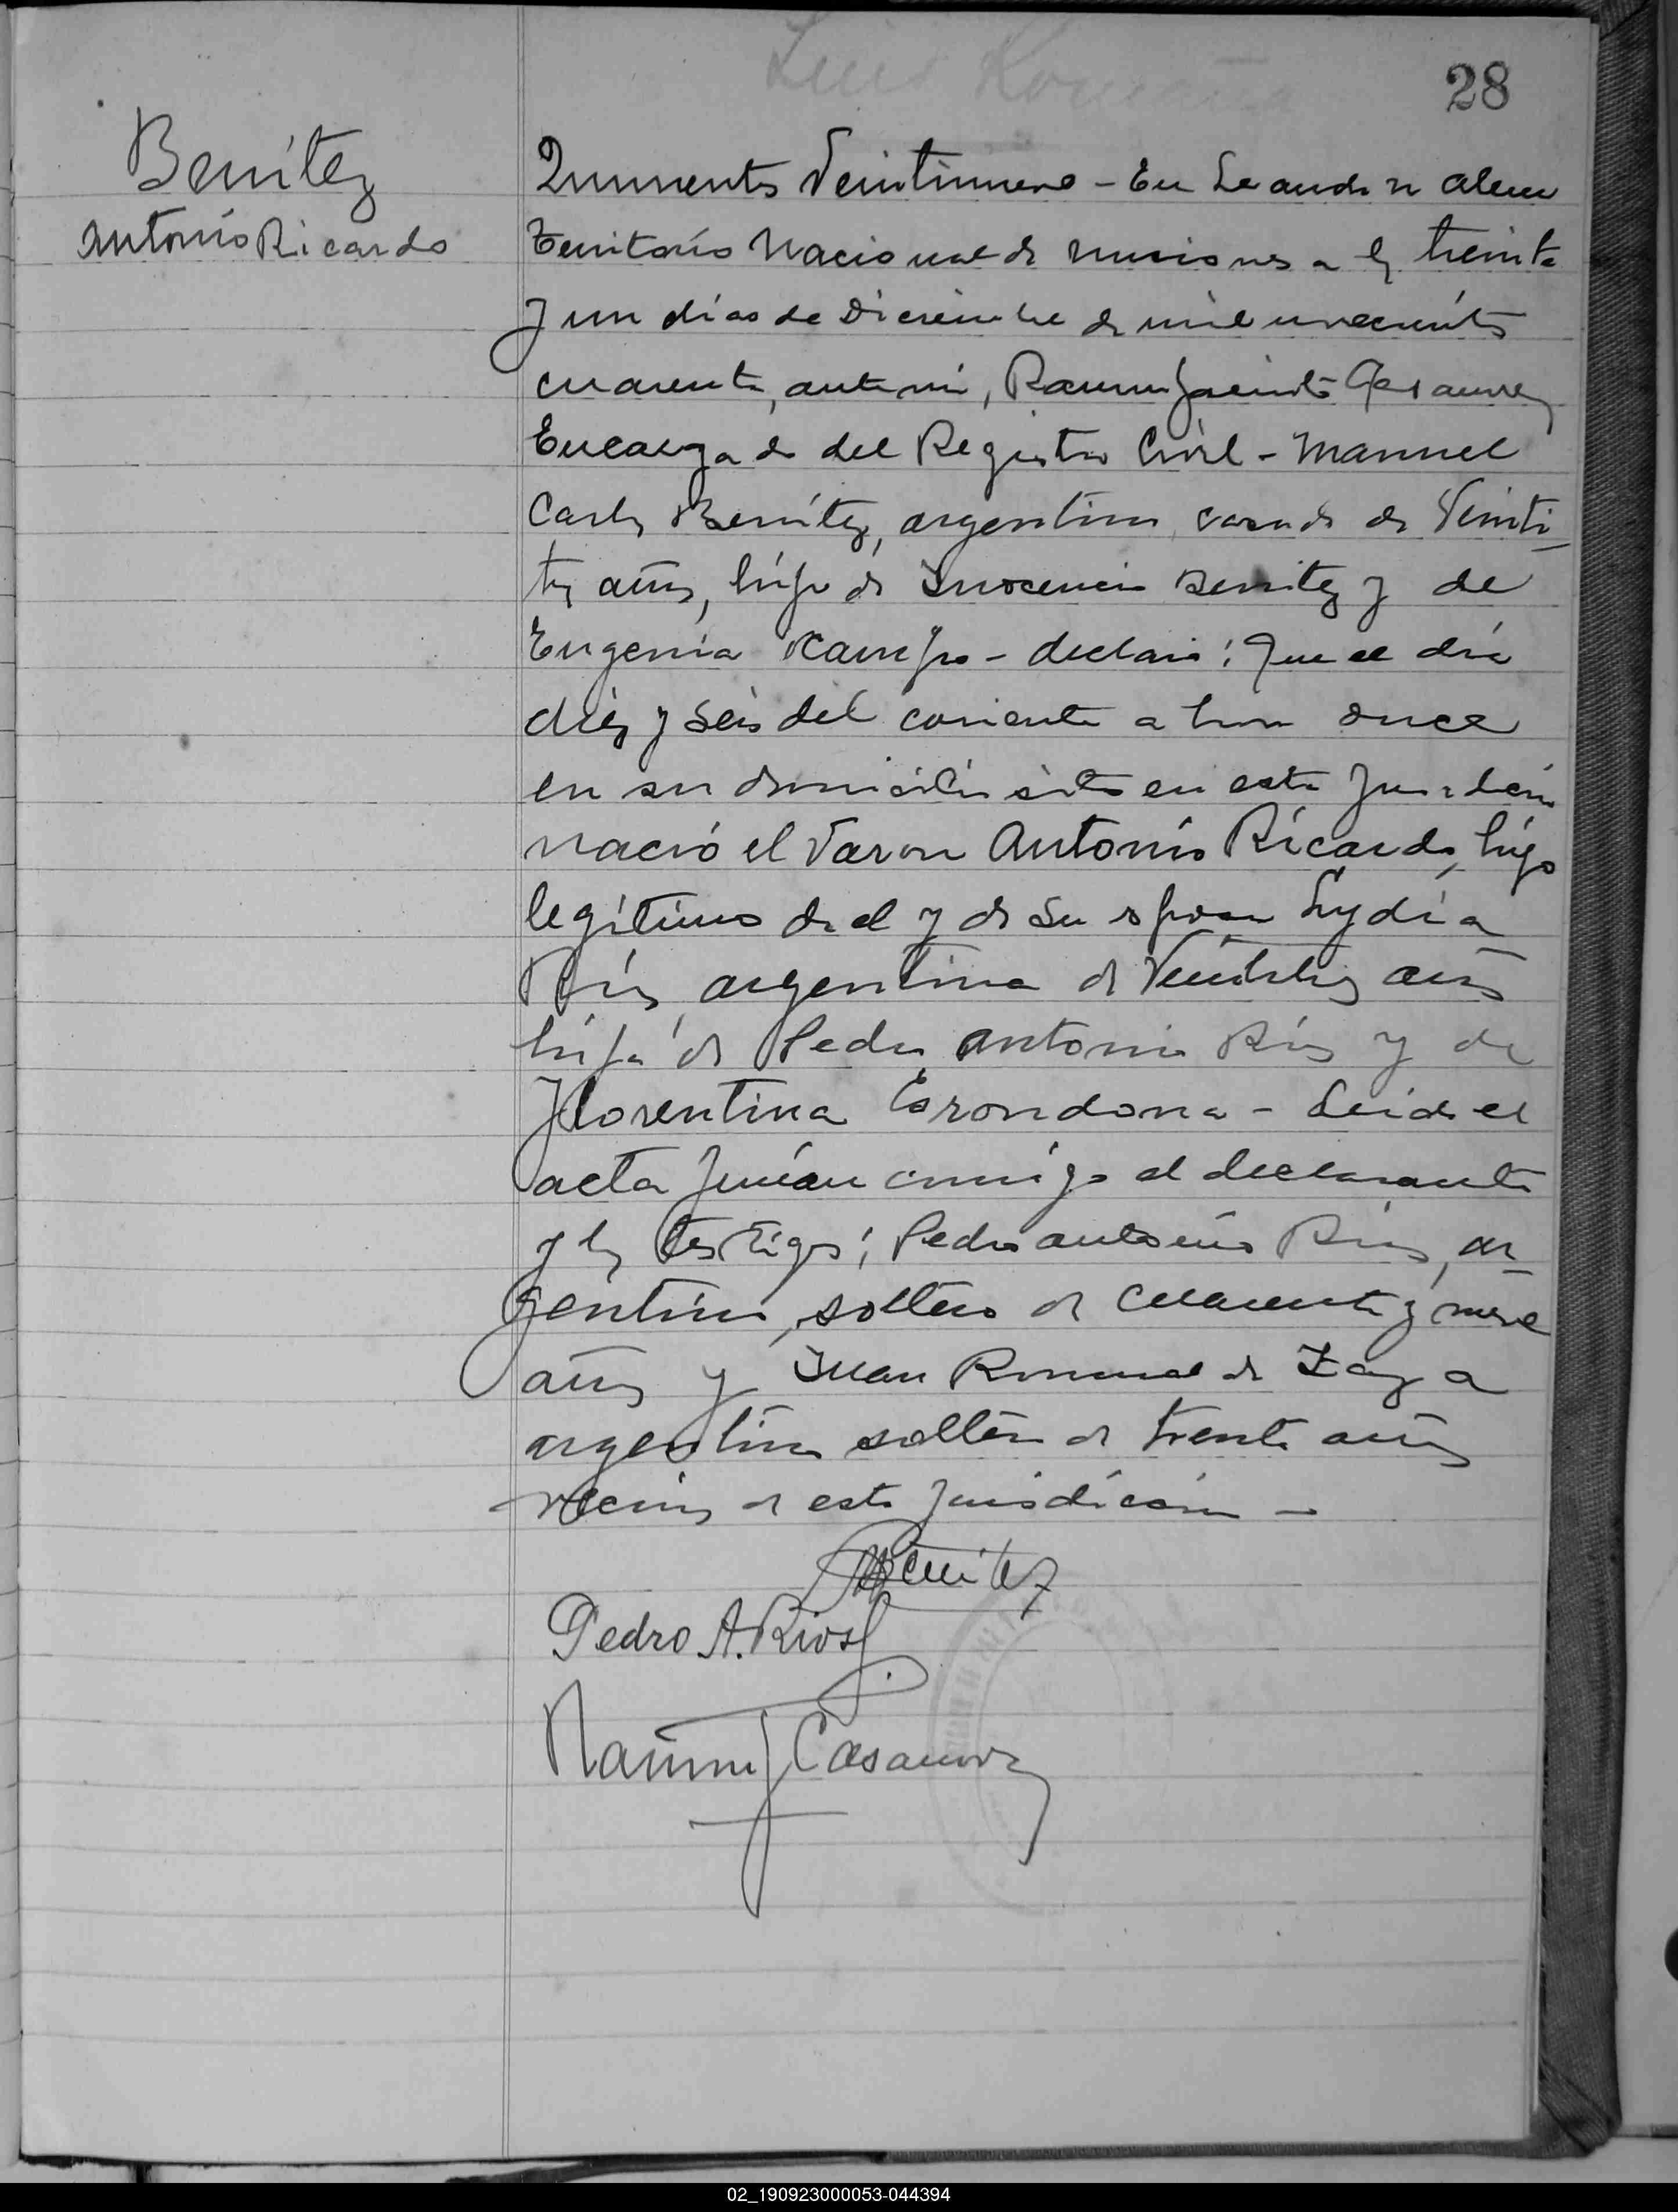 28
Benítez
Antonio Ricardo
Quinientos Veintinueve - En Leandro N Alem
Territorio Nacional de Misiones a los treinta
y un días de Diciembre de mil novecientos
cuarenta, ante mí, Ramon Jacinto Casanova
Encargado del Registro Civil - Manuel
Carlos Benítez, argentino, casado de Veinti
tres años, hijo de Inocencio Benitez y de
Eugenia Ocampo - declaró: Que el día
diez y seis del corriente a hora once
en su domicilio sito en esta Jurisdicción
nació el Varon Antonio Ricardo, hijo
legítimo de el y de su esposa Lydia
Ríos, argentina de Veintitres años
hija de Pedro Antonio Ríos y de
Florentina Escondona - Leida el
acta firman conmigo el declarante
y los testigos; Pedro Antonio Ríos, ar-
gentino, soltero de cuarenta y nueve
años y Juan Romual de Zaya
argentino soltero de treinta años
vecinos de esta jurisdicción -
Benitez
Pedro A. Rios
Ramon J Casanova
02_190923000053-044394